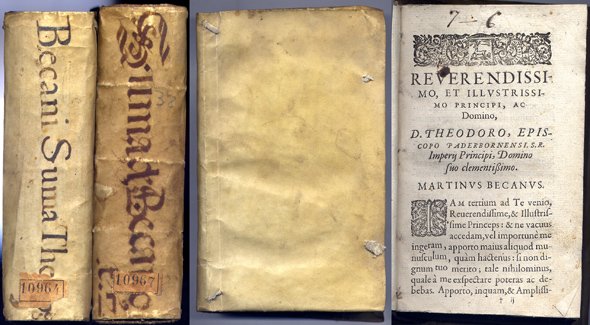 Becani Suma The
10964
Suma d Becano
32
10967
7 6
REVERENDISSI-
MO, ET ILLVSTRISSI-
MO PRINCIPI, AC
Domino,
D. THEODORO, EPIS-
COPO PADERBORNENSI. S.R.
Imperij Principi, Domino
suo clementissimo.
MARTINVS BECANVS.
IAM tertium ad Te venio,
Reuerendissime, & Illustris-
sime Princeps: & ne vacuus
accedam, vel importunè me
ingeram, apporto maius aliquod mu-
nusculum, quàm hactenus: si non di-
gnum tuo merito; tale nihilominus,
quale à me exspectare poteras ac de-
bebas. Apporto, inquam, & Amplissi-
† ij